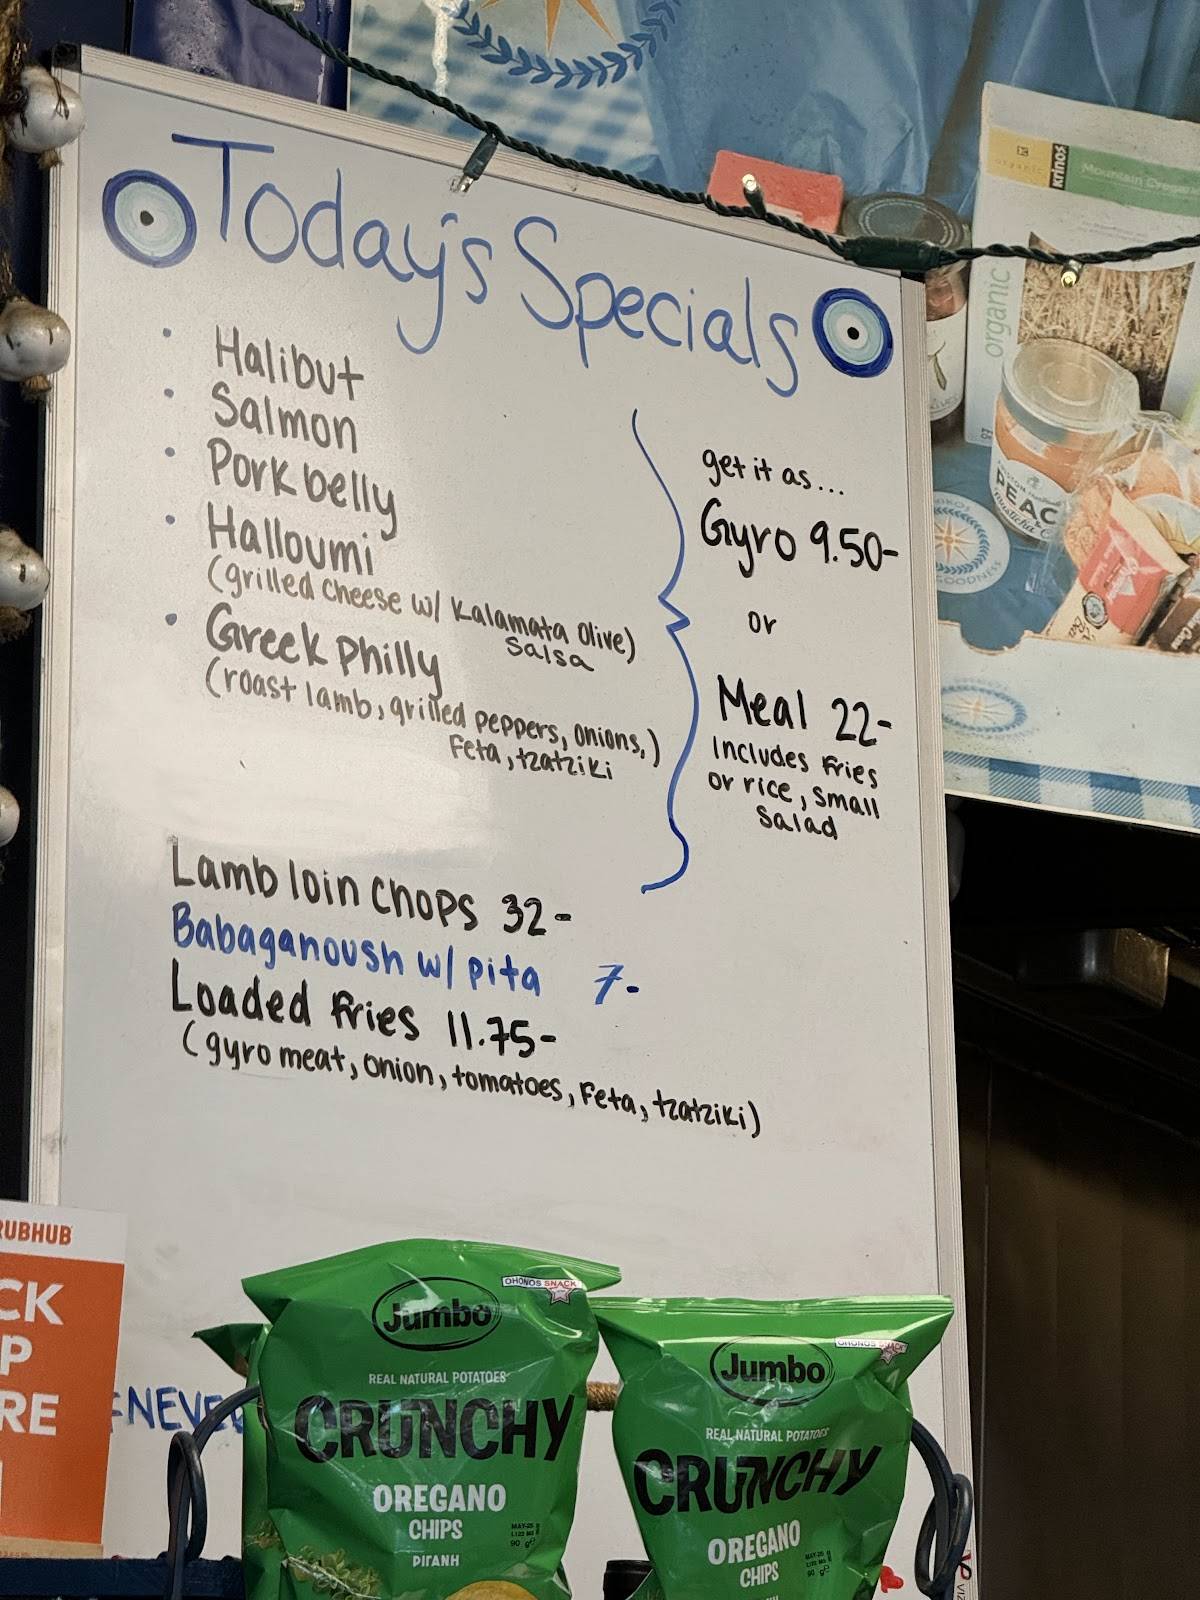 Today's Specials
• Halibut
• Salmon
• Pork belly
• Halloumi
(grilled cheese w/ Kalamata Olive)
Salsa
• Greek Philly
(roast lamb, grilled peppers, onions,)
Feta, tzatziki
get it as...
Gyro 9.50-
or
Meal 22-
Includes Fries
or rice, small
Salad
Lamb loin chops 32-
Babaganoush w/ pita 7-
Loaded fries 11.75-
(gyro meat, onion, tomatoes, Feta, tzatziki)
organic
krinos
Mountain Oregano
organic
PEAC
GOODNESS
RUBHUB
CK
P
RE
NEVE
Jumbo
OHONOS SNACK
REAL NATURAL POTATOES
CRUNCHY
OREGANO
CHIPS
ΡΙΓΑΝΗ
90 g
Jumbo
OHONOS SNACK
REAL NATURAL POTATOES
CRUNCHY
OREGANO
CHIPS
90 g